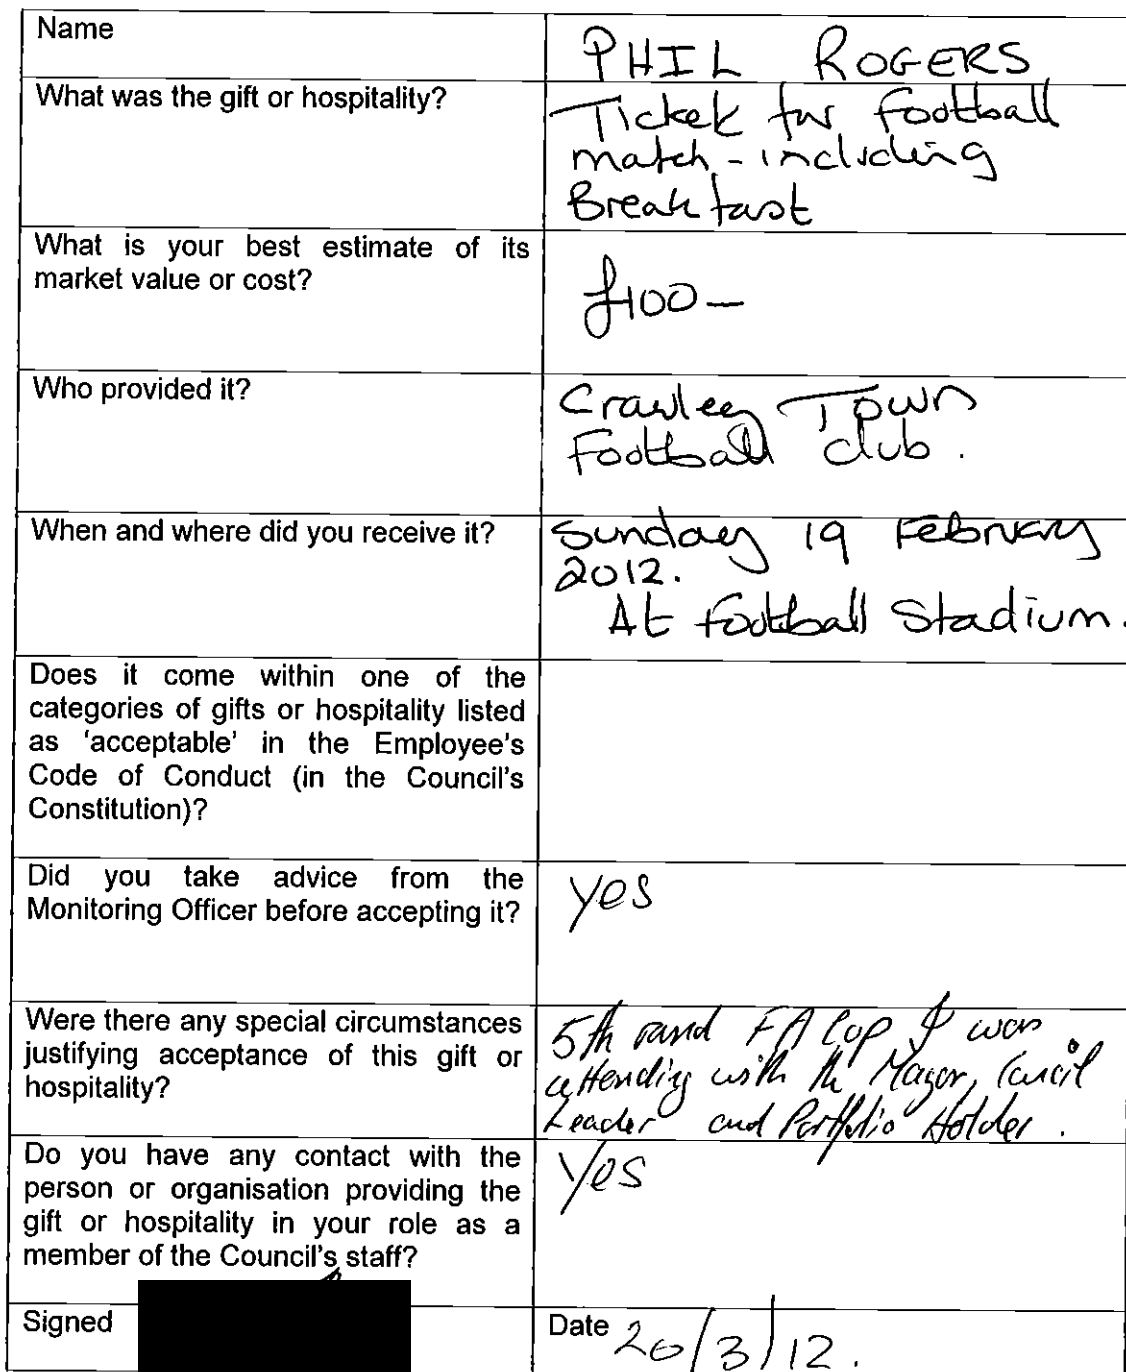 Name
PHIL ROGERS
What was the gift or hospitality?
Ticket for football
match - including
Breakfast
What is your best estimate of its
market value or cost?
£100—
Who provided it?
Crawley Town
Football club.
When and where did you receive it?
Sunday 19 February
2012.
At football Stadium.
Does it come within one of the
categories of gifts or hospitality listed
as 'acceptable' in the Employee's
Code of Conduct (in the Council's
Constitution)?
Did you take advice from the
Monitoring Officer before accepting it?
yes
Were there any special circumstances
justifying acceptance of this gift or
hospitality?
5th round FA Cup I was
attending with the Mayor, Council
Leader and Portfolio Holder.
Do you have any contact with the
person or organisation providing the
gift or hospitality in your role as a
member of the Council's staff?
yes
Signed
Date 20/3/12.